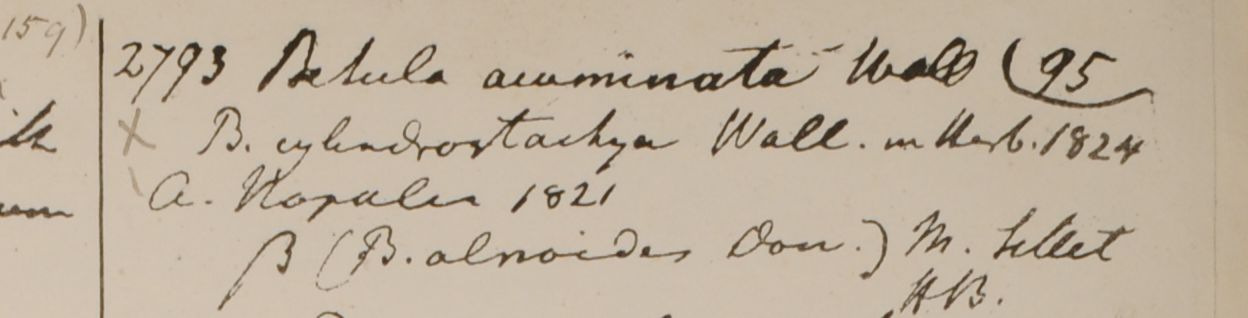 159)
2793 Betula acuminata Wall (95
X B. cylindrostachya Wall. in Herb. 1824
a. Napalia 1821
β (B. alnoides Don.) M. Sillet
HB.